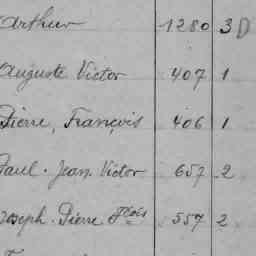 Arthur 1280 3D
Auguste Victor 407 1
Pierre, François 406 1
Paul. Jean. Victor 657 2
Joseph. Pierre 557 2